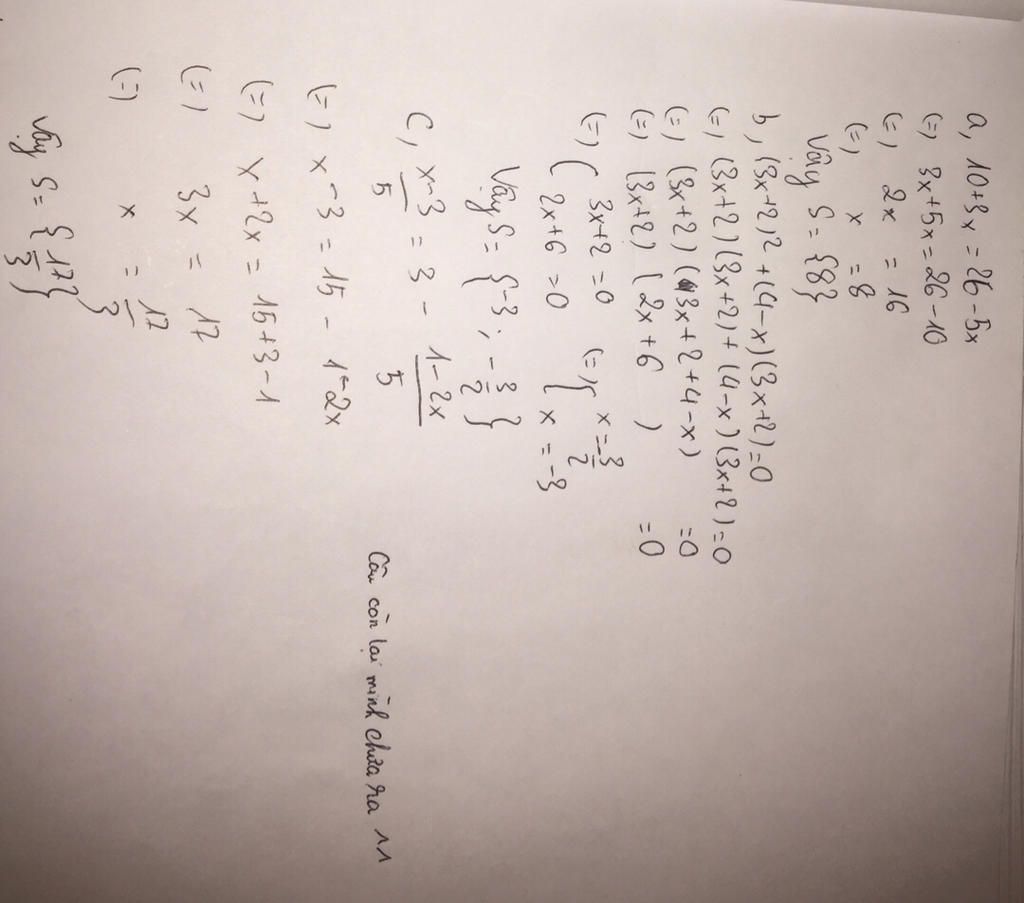 a, 10+3x = 26-5x
(=) 3x+5x = 26-10
(=) 2x = 16
(=) x = 8
Vậy S = {8}
b, (3x+2)2 + (4-x)(3x+2)=0
(=) (3x+2)(3x+2)+(4-x)(3x+2)=0
(=) (3x+2)(3x+2+4-x) =0
(=) (3x+2)(2x+6) =0
(=) { 3x+2=0 (=) { x=-3/2
2x+6=0 x=-3
Vậy S = {-3; -3/2}
C, x-3/5 = 3 - 1-2x/5
(=) x-3 = 15 - 1-2x
(=) x+2x = 15+3-1
(=) 3x = 17
(=) x = 17/3
Vậy S = {17/3}
Câu còn lại mình chưa ra ^^